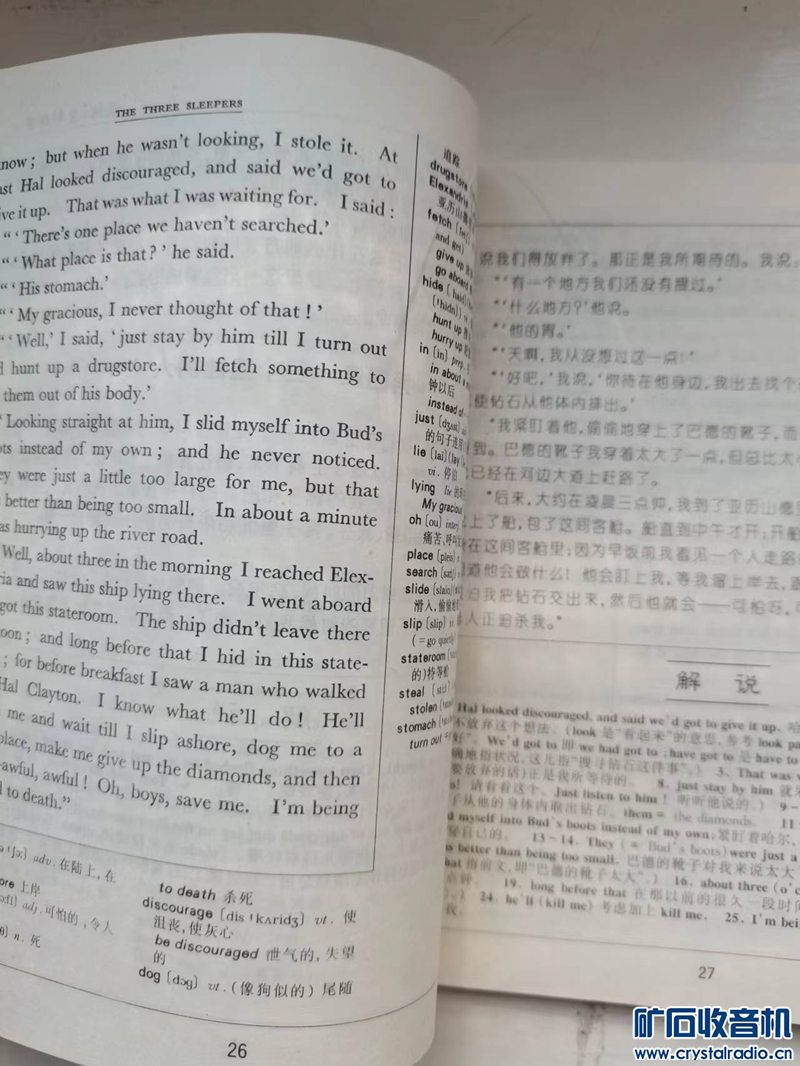 THE THREE SLEEPERS
now; but when he wasn't looking, I stole it. At
ast Hal looked discouraged, and said we'd got to
ive it up. That was what I was waiting for. I said:
"'There's one place we haven't searched.'
"'What place is that?' he said.
"'His stomach.'
"'My gracious, I never thought of that!'
"'Well,' I said, 'just stay by him till I turn out
d hunt up a drugstore. I'll fetch something to
them out of his body.'
'Looking straight at him, I slid myself into Bud's
ots instead of my own; and he never noticed.
ey were just a little too large for me, but that
s better than being too small. In about a minute
as hurrying up the river road.
Well, about three in the morning I reached Elex-
ria and saw this ship lying there. I went aboard
got this stateroom. The ship didn't leave there
oon; and long before that I hid in this state-
; for before breakfast I saw a man who walked
Hal Clayton. I know what he'll do! He'll
me and wait till I slip ashore, dog me to a
place, make me give up the diamonds, and then
-awful, awful! Oh, boys, save me. I'm being
d to death."
adv. 在陆上，在
ore 上岸
adj. 可怕的，令人
n. 死
to death 杀死
discourage [dis'kʌridʒ] vt. 使
沮丧，使灰心
be discouraged 泄气的，失望
的
dog [dɔg] vt. (像狗似的) 尾随
26
追踪
drugstore
Elexandria
亚历山
fetch
and get)
give up
go aboard
hide [haid]
hunt up
hurry up
in [in] prep.
in about a
钟以后
instead of
just [dʒʌst]
的句子连用
lie [lai] (lay
vi. 停泊
lying lie 的
My gracious
oh [ou] interj.
痛苦、呼叫
place [pleis]
search
slide [slaid]
滑入，偷偷地
slip [slip]
(=go quietly
stateroom
的)特等舱
steal
stolen
stomach
turn out
说我们得放弃了。那正是我所期待的。我说：
"'有一个地方我们还没有搜过。'
"'什么地方？'他说。
"'他的胃。'
"'天啊，我从没想过这一点！'
"'好吧，'我说，'你待在他身边，我出去找个
使钻石从他体内排出。'
"我紧盯着他，偷偷地穿上了巴德的靴子，而
到。巴德的靴子我穿着太大了一点，但总比太
已经在河边大道上赶路了。
"后来，大约在凌晨三点钟，我到了亚历山德里
上了船，包了这间客舱。船直到中午才开；开船
在这间客舱里；因为早饭前我看见一个人走路
道他会做什么！他会盯上我，等我溜上岸去，
迫我把钻石交出来，然后他就会——可怕呀，可
人正追杀我。"
解 说
Hal looked discouraged, and said we'd got to give it up.
不放弃这个想法。(look 是"看起来"的意思，参考 look
We'd got to 即 we had got to; have got to 是 have to
确地指状况，这儿指"搜寻钻石这件事"。) 3. That was
要放弃的话)正是我所等待的。 8. just stay by him 就
请看看这个. Just listen to him! 听听他说的.) 9-
子从他的身体内取出钻石。them = the diamonds. 11
myself into Bud's boots instead of my own: 紧盯着哈尔，
自己的。 13-14. They (= Bud's boots) were just a
s better than being too small. 巴德的靴子对我来说太大
指前文，即"巴德的靴子太大"。) 16. about three (o'c
点钟。 19. long before that 在那以前的很久一段时间
24. he'll (kill me) 考虑加上 kill me. 25. I'm bei
27
矿石收音机
www.crystalradio.cn